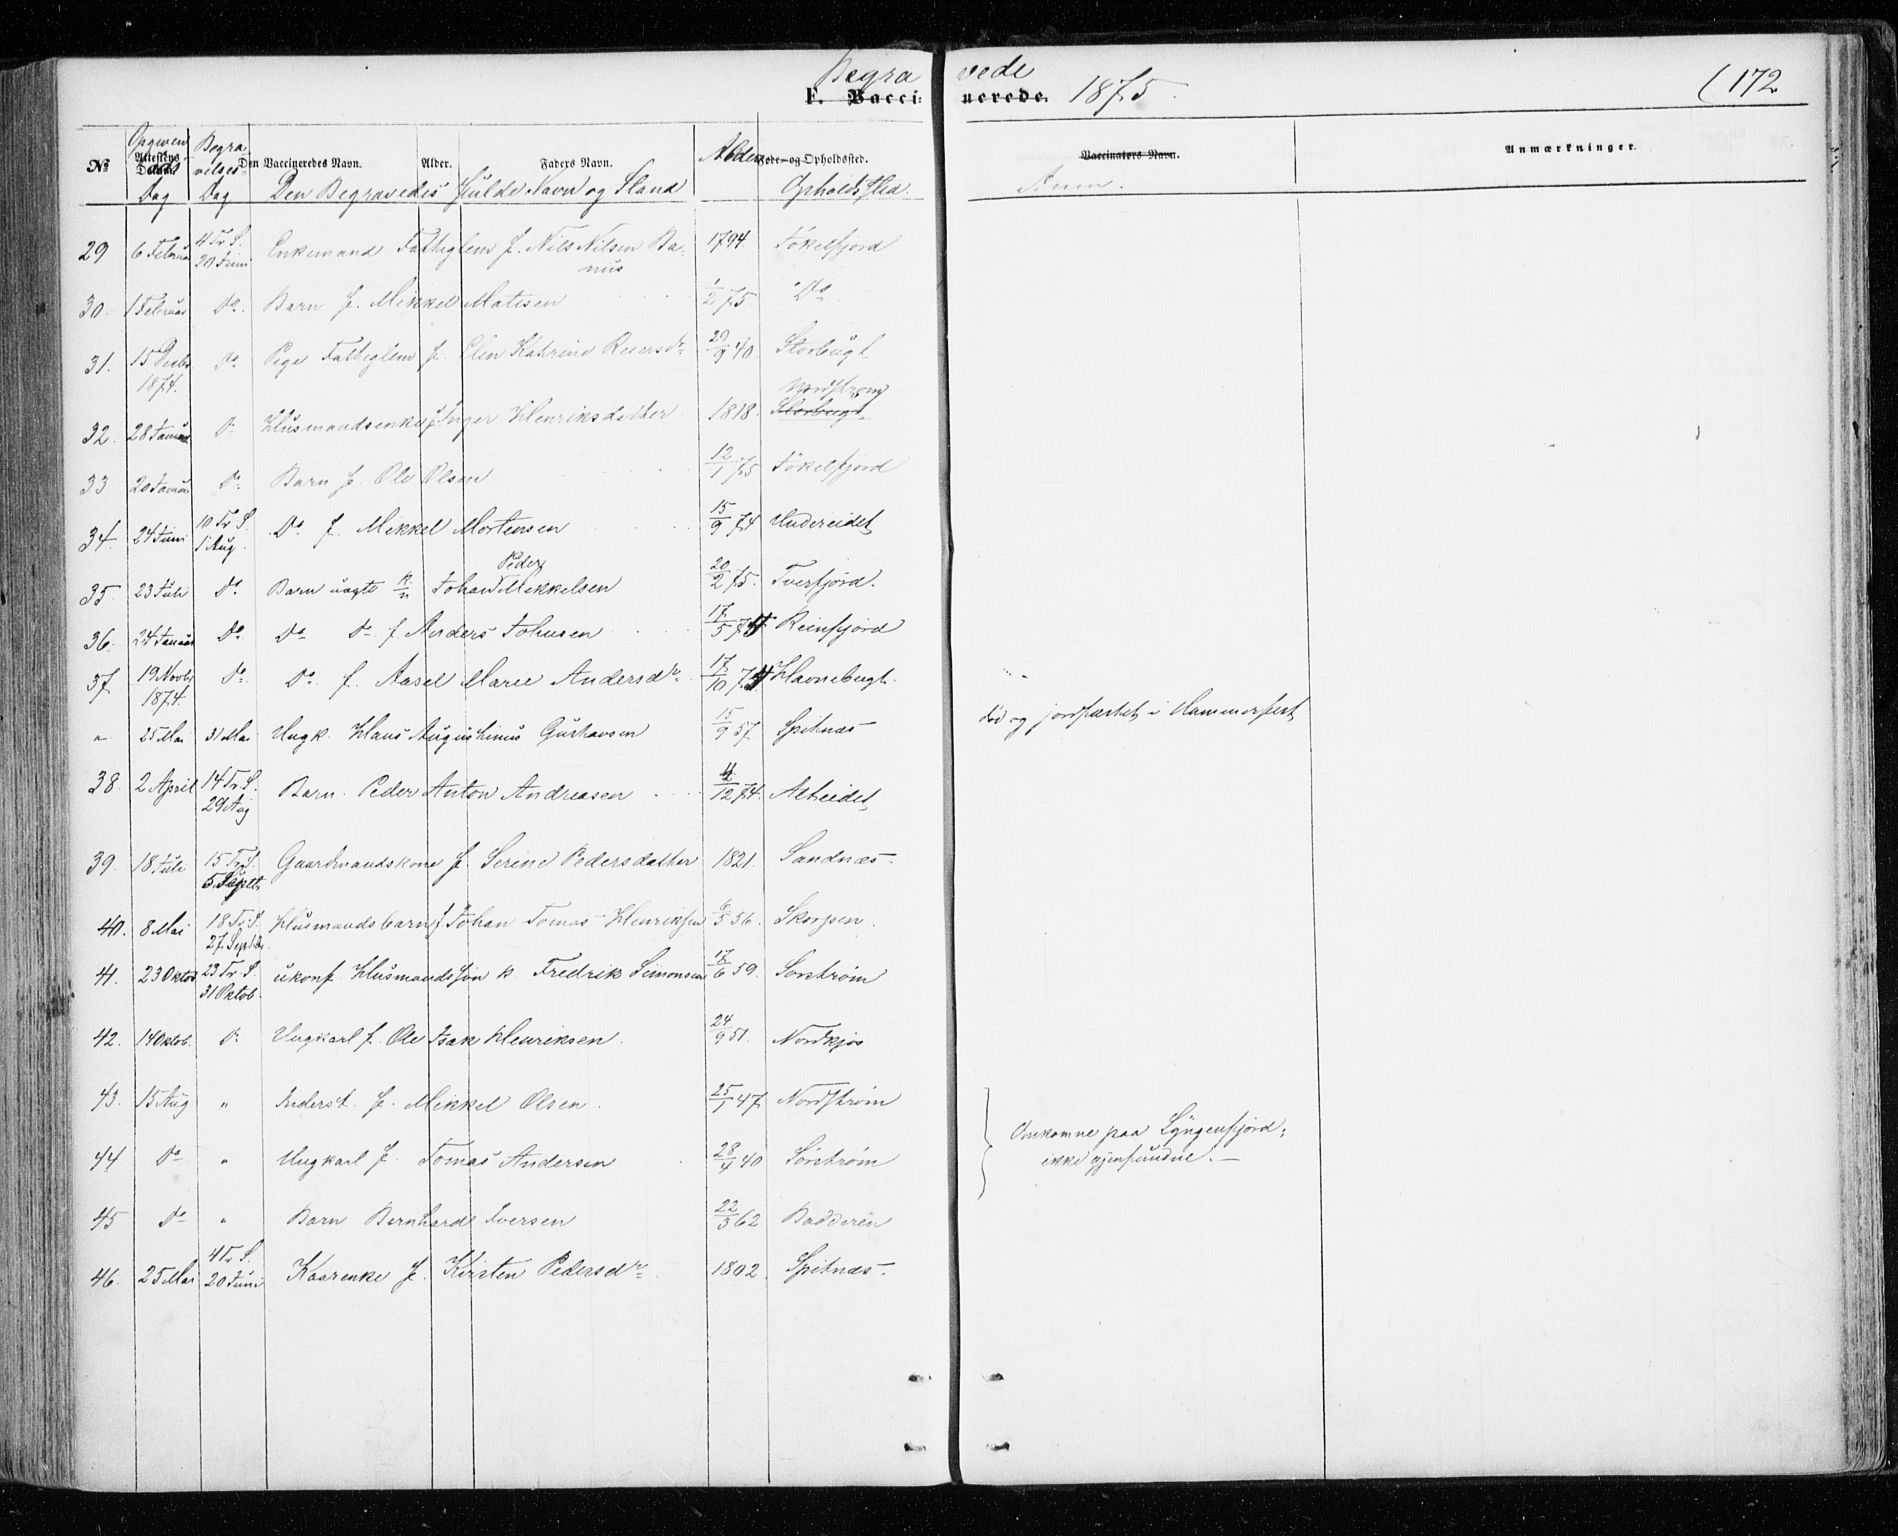 Begra vede
F. Vaccinerede. 1875.
172
No
Opgivne Døds Dag
Attestens Datum
Begravelses-Dag
Den Vaccineredes Navn. Alder. Faders Navn.
Den Begravedes fulde Navn og Stand
Alder
Føde- og Opholdssted.
Opholdssted
Vaccinators Navn.
Anmærkninger.
29 6 Februar 4 Tr S. 20 Juni Enkemand Fattiglem f. Nils Nilsen Ba- 1794 Jøkelfjord
nus
30. 1 Februar Do. Barn f. Mikkel Matisen 1/2 75 Do.
31. 15 Decbr 1874. Do Pige Fattiglem f. Elen Kathrine Reiersdr 29/9 40. Storbugt
Nordstrøm
32. 28 Januar Do Husmandsenke f Inger Henriksdatter 1818. Storbugt.
33 20 Januar Do. Barn f. Ole Olsen 12/1 75 Jøkelfjord
34. 24 Juni 10 Tr S. 1 Aug. Do f. Mikkel Mortensen 15/9 74 Undereidet
Peder
35. 23 Juli Do. Barn uægte k/n Johan Mikkelsen 20/2 75. Tverfjord.
36. 24 Januar Do Do Do f Anders Johnsen 17/5 74 Reinfjord
37 19 Novbr 1874. Do Do. f. Aasel Marie Andersdr 17/10 74 Havnebugt.
" 25 Mai 31 Mai Ungk. Hans Augustinus Gustavsen 15/9 57. Spitnæs død og jordfæstet i Hammerfest
38. 2 April 14 Tr S. 29 Aug Barn. Peder Anton Andreasen 4/12 74. Alteidet
39. 18 Juli 15 Tr S. 5 Septbr Gaardmandskone f. Serine Pedersdatter 1821. Sandnæs.
40. 8 Mai 18 Tr S. 27 Septbr. Husmandsbarn f Johan Tomas Henriksen 6/5 56. Skorpen.
41. 23 Oktob 23 Tr S. 31 Oktob. ukonf. Husmandssøn k. Fredrik Simonsen 17/6 59. Sørstrøm
42. 14 Oktob. Do Ungkarl f. Ole Isak Henriksen. 24/9 51. Nordkjos
43. 15 Aug " Inderst. f. Mikkel Olsen. 25/1 47 Nordstrøm
Omkomne paa Lyngenfjord,
44 Do " Ungkarl f. Tomas Andersen 28/4 40 Sørstrøm
ikke gjenfundne. —
45 Do " Barn Bernhard Iversen 22/3 62 Badderen
46. 25 Mai 4 Tr S. 20 Juni Kaarenke f. Kirsten Pedersdr 1802. Spitnæs.